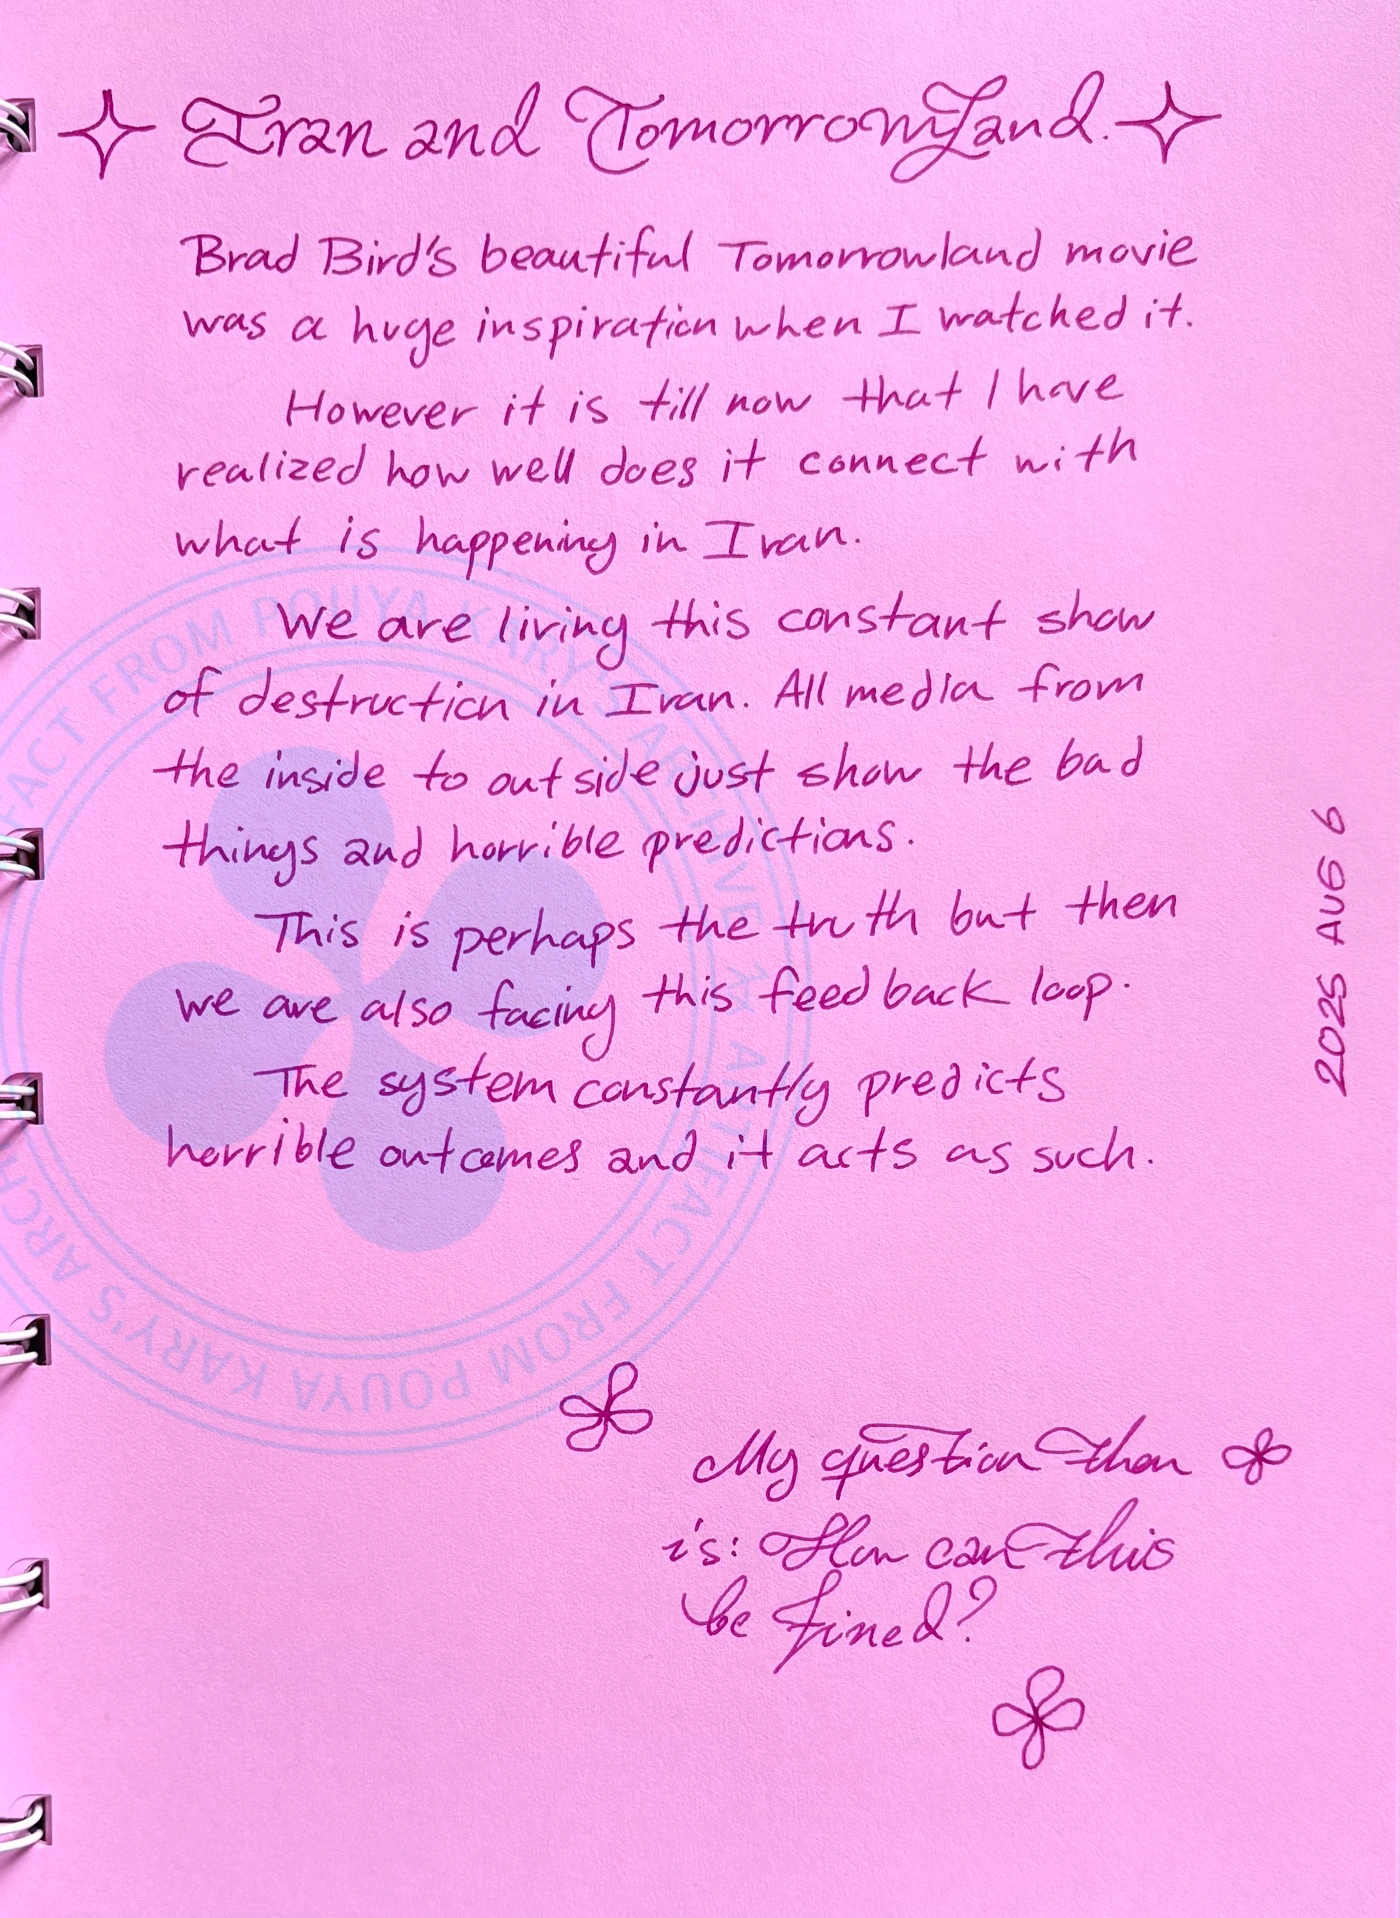 Iran and TomorrowLand.
Brad Bird's beautiful Tomorrowland movie
was a huge inspiration when I watched it.
However it is till now that I have
realized how well does it connect with
what is happening in Iran.
We are living this constant show
of destruction in Iran. All media from
the inside to outside just show the bad
things and horrible predictions.
This is perhaps the truth but then
we are also facing this feedback loop.
The system constantly predicts
horrible outcomes and it acts as such.
My question then
is: How can this
be fixed?
2025 AUG 6
ARTIFACT FROM POUYA KARY'S ARCHIVE
ARTIFACT FROM POUYA KARY'S ARCH